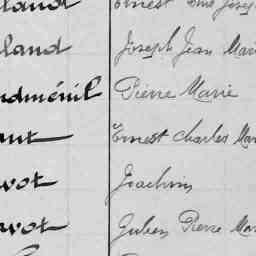 Ernest
lland Joseph Jean Marie
ndménil Pierre Marie
aut Ernest Charles Mar
vot Joachim
avot Julien Pierre Mar